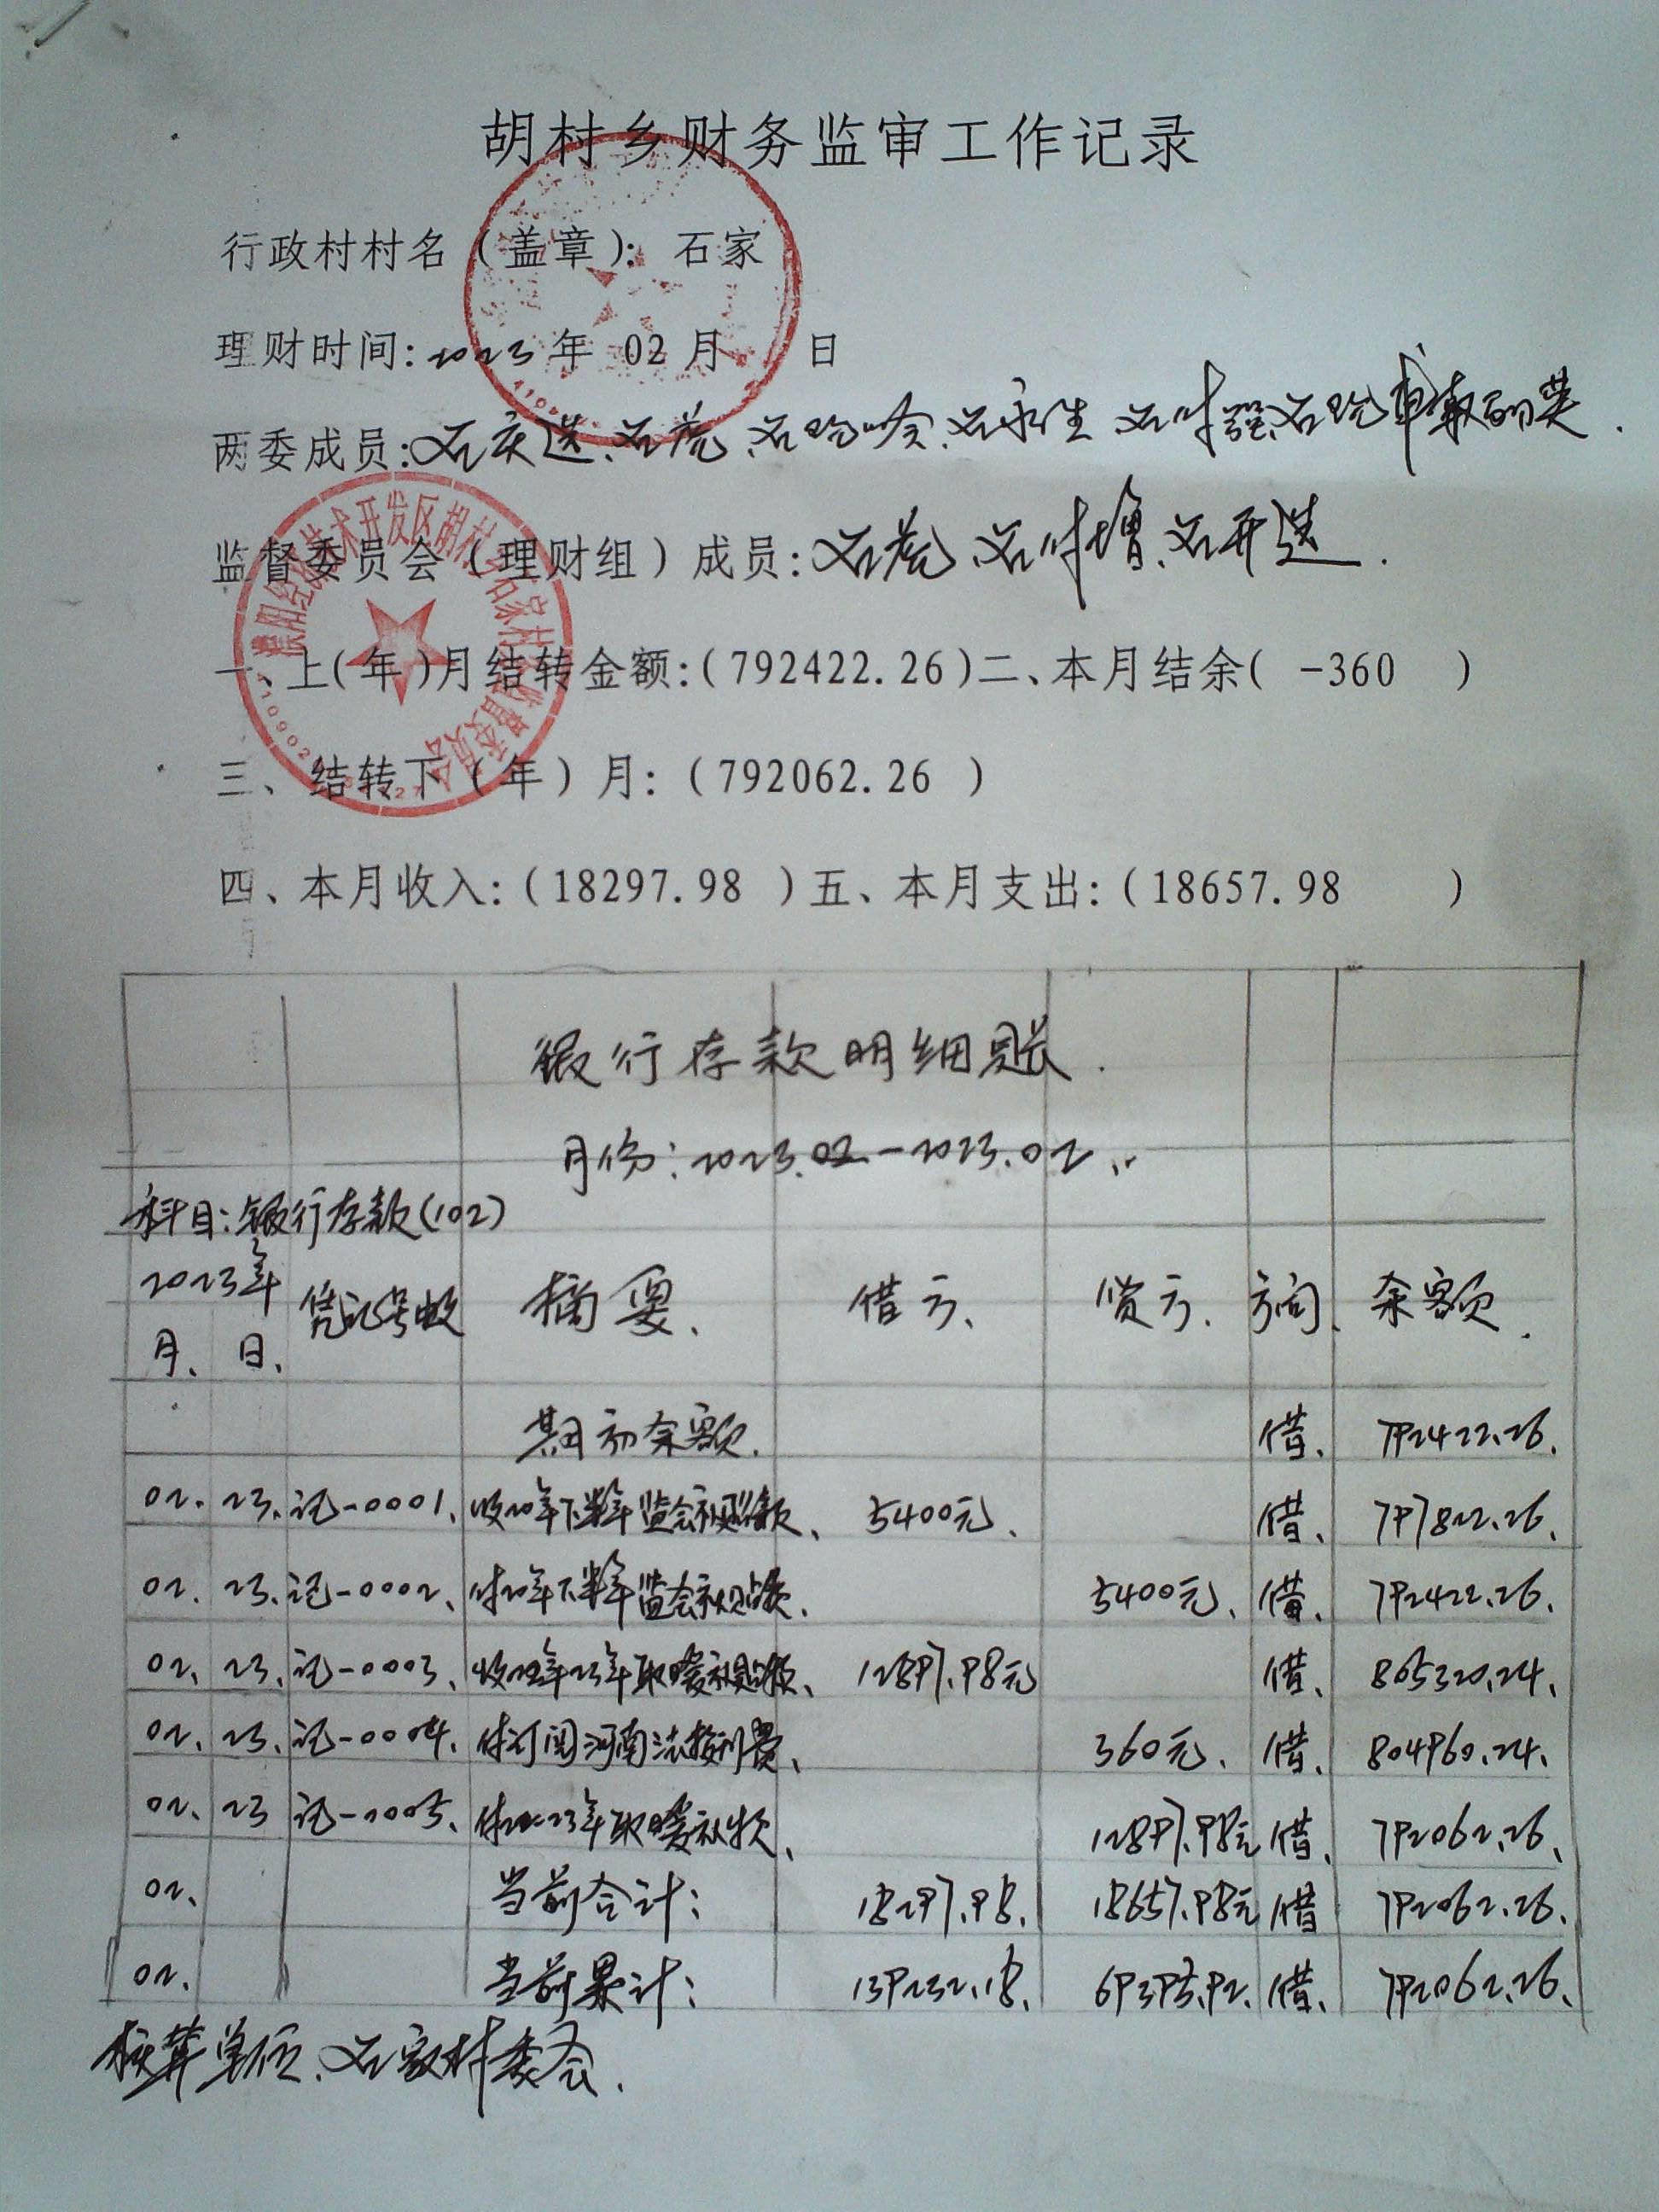 胡村乡财务监审工作记录
行政村村名（盖章）： 石家
理财时间：2023年 02月 日
两委成员：石庆选、石虎、石永生
监督委员会（理财组）成员：石虎、石付增、石开选.
一、上(年)月结转金额：(792422.26)二、本月结余( -360 )
三、结转下（年）月：(792062.26 )
四、本月收入：(18297.98 )五、本月支出：(18657.98 )
银行存款明细账.
月份：2023.02-2023.02
科目：银行存款(102)
2023年 月、日、 凭证号数 摘要、 借方、 贷方. 方向、 余额.
期初余额. 借、 792422.26.
02. 23. 记-0001、 收20年下半年监会补贴款、 5400元. 借、 797822.26、
02. 23. 记-0002、 付20年下半年监会补贴款. 5400元、 借、 792422.26.
02. 23. 记-0003、 收22年23年取暖补贴款、 12897.98元 借、 805320.24、
02. 23. 记-0004. 付订阅河南法报刊费、 360元. 借、 804960.24.
02、 23 记-0005、 付22-23年取暖补款、 12897.98元 借、 792062.26、
02、 当前合计： 18297.98. 18657.98元 借 792062.26.
02. 当前累计： 139232.18. 69395.92. 借、 792062.26、
核算单位、石家村委会.
开发区胡村乡石家村
监督委员会